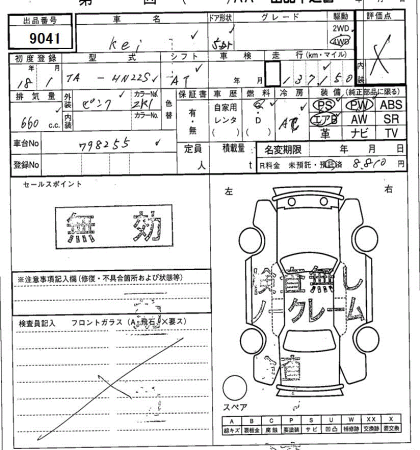 出品番号 車名 ドア形状 グレード 駆動 評価点
9041 Kei 5ドア 2WD 4WD
初度登録 型式 シフト 車検 走行(km・マイル) 内装
18年1月 TA-HN22S AT 年 月 137,150
排気量 外装 ピンク カラーNo. ZK1 色替 保証書 車歴 燃料 冷房 装備(純正部品に限る)
660 c.c. 内装 カラーNo. 有・無 自家用 レンタ ( ) G・D ( ) AC PS PW ABS
エアB AW SR
革 ナビ TV
車台No 798255 定員 人 積載量 t 名変期限 年 月 日
登録No R料金 未預託・預託済 8,810 円
セールスポイント
無効
左 右
※注意事項記入欄(修復・不具合箇所および状態等)
検査無し
ノークレーム
検査員記入 フロントガラス(A=飛石 ×要ス)
スペア
A B C P S U W XX X